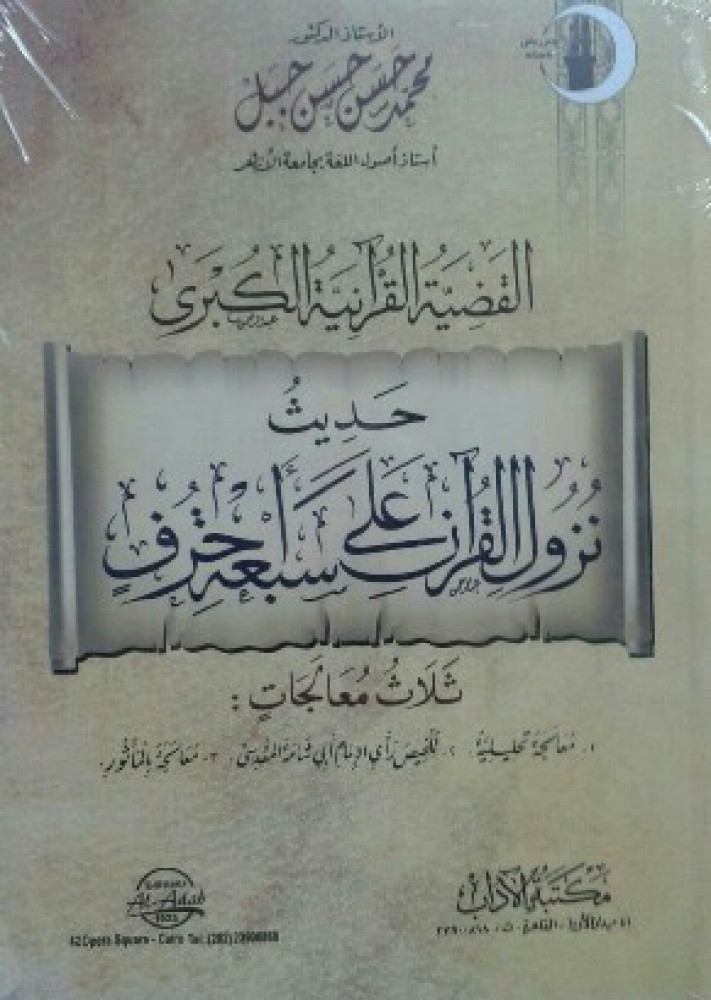 الأستاذ الدكتور
محمد حسن حسن جبل
أستاذ أصول اللغة بجامعة الأزهر
القَضِيَّةُ القُرْآنِيَّةُ الكُبْرَى
حَدِيثُ
نُزُولِ القُرْآنِ عَلَى سَبْعَةِ أَحْرُفٍ
ثَلَاثُ مُعَالَجَاتٍ :
١. معالجة تحليلية. ٢. تلخيص رأي الإمام أبي شامة المقدسي. ٣. معالجة بالمأثور.
مكتبة الآداب
٤٢ ميدان الأوبرا - القاهرة - ت:
Al-Adab
1923
42 Opera Square - Cairo Tel: (202) 23900868